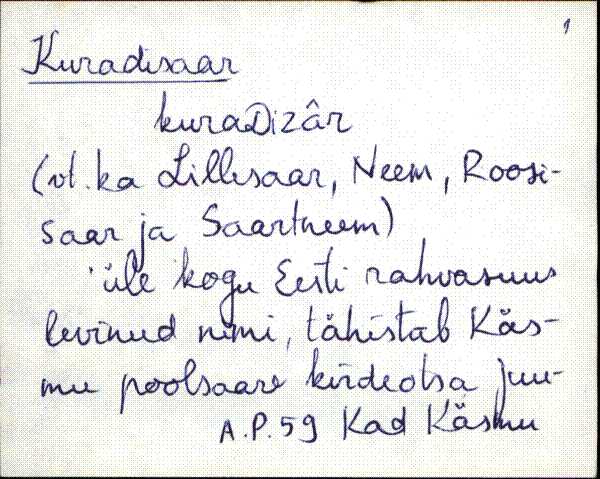 1
Kuradisaar
kuraDizâr
(vt. ka Lillesaar, Neem, Roosi-
saar ja Saartneem)
üle kogu Eesti rahvasuus
levinud nimi, tähistab Käs-
mu poolsaare kirdeotsa juu-
A.P. 59 Kad Käsmu